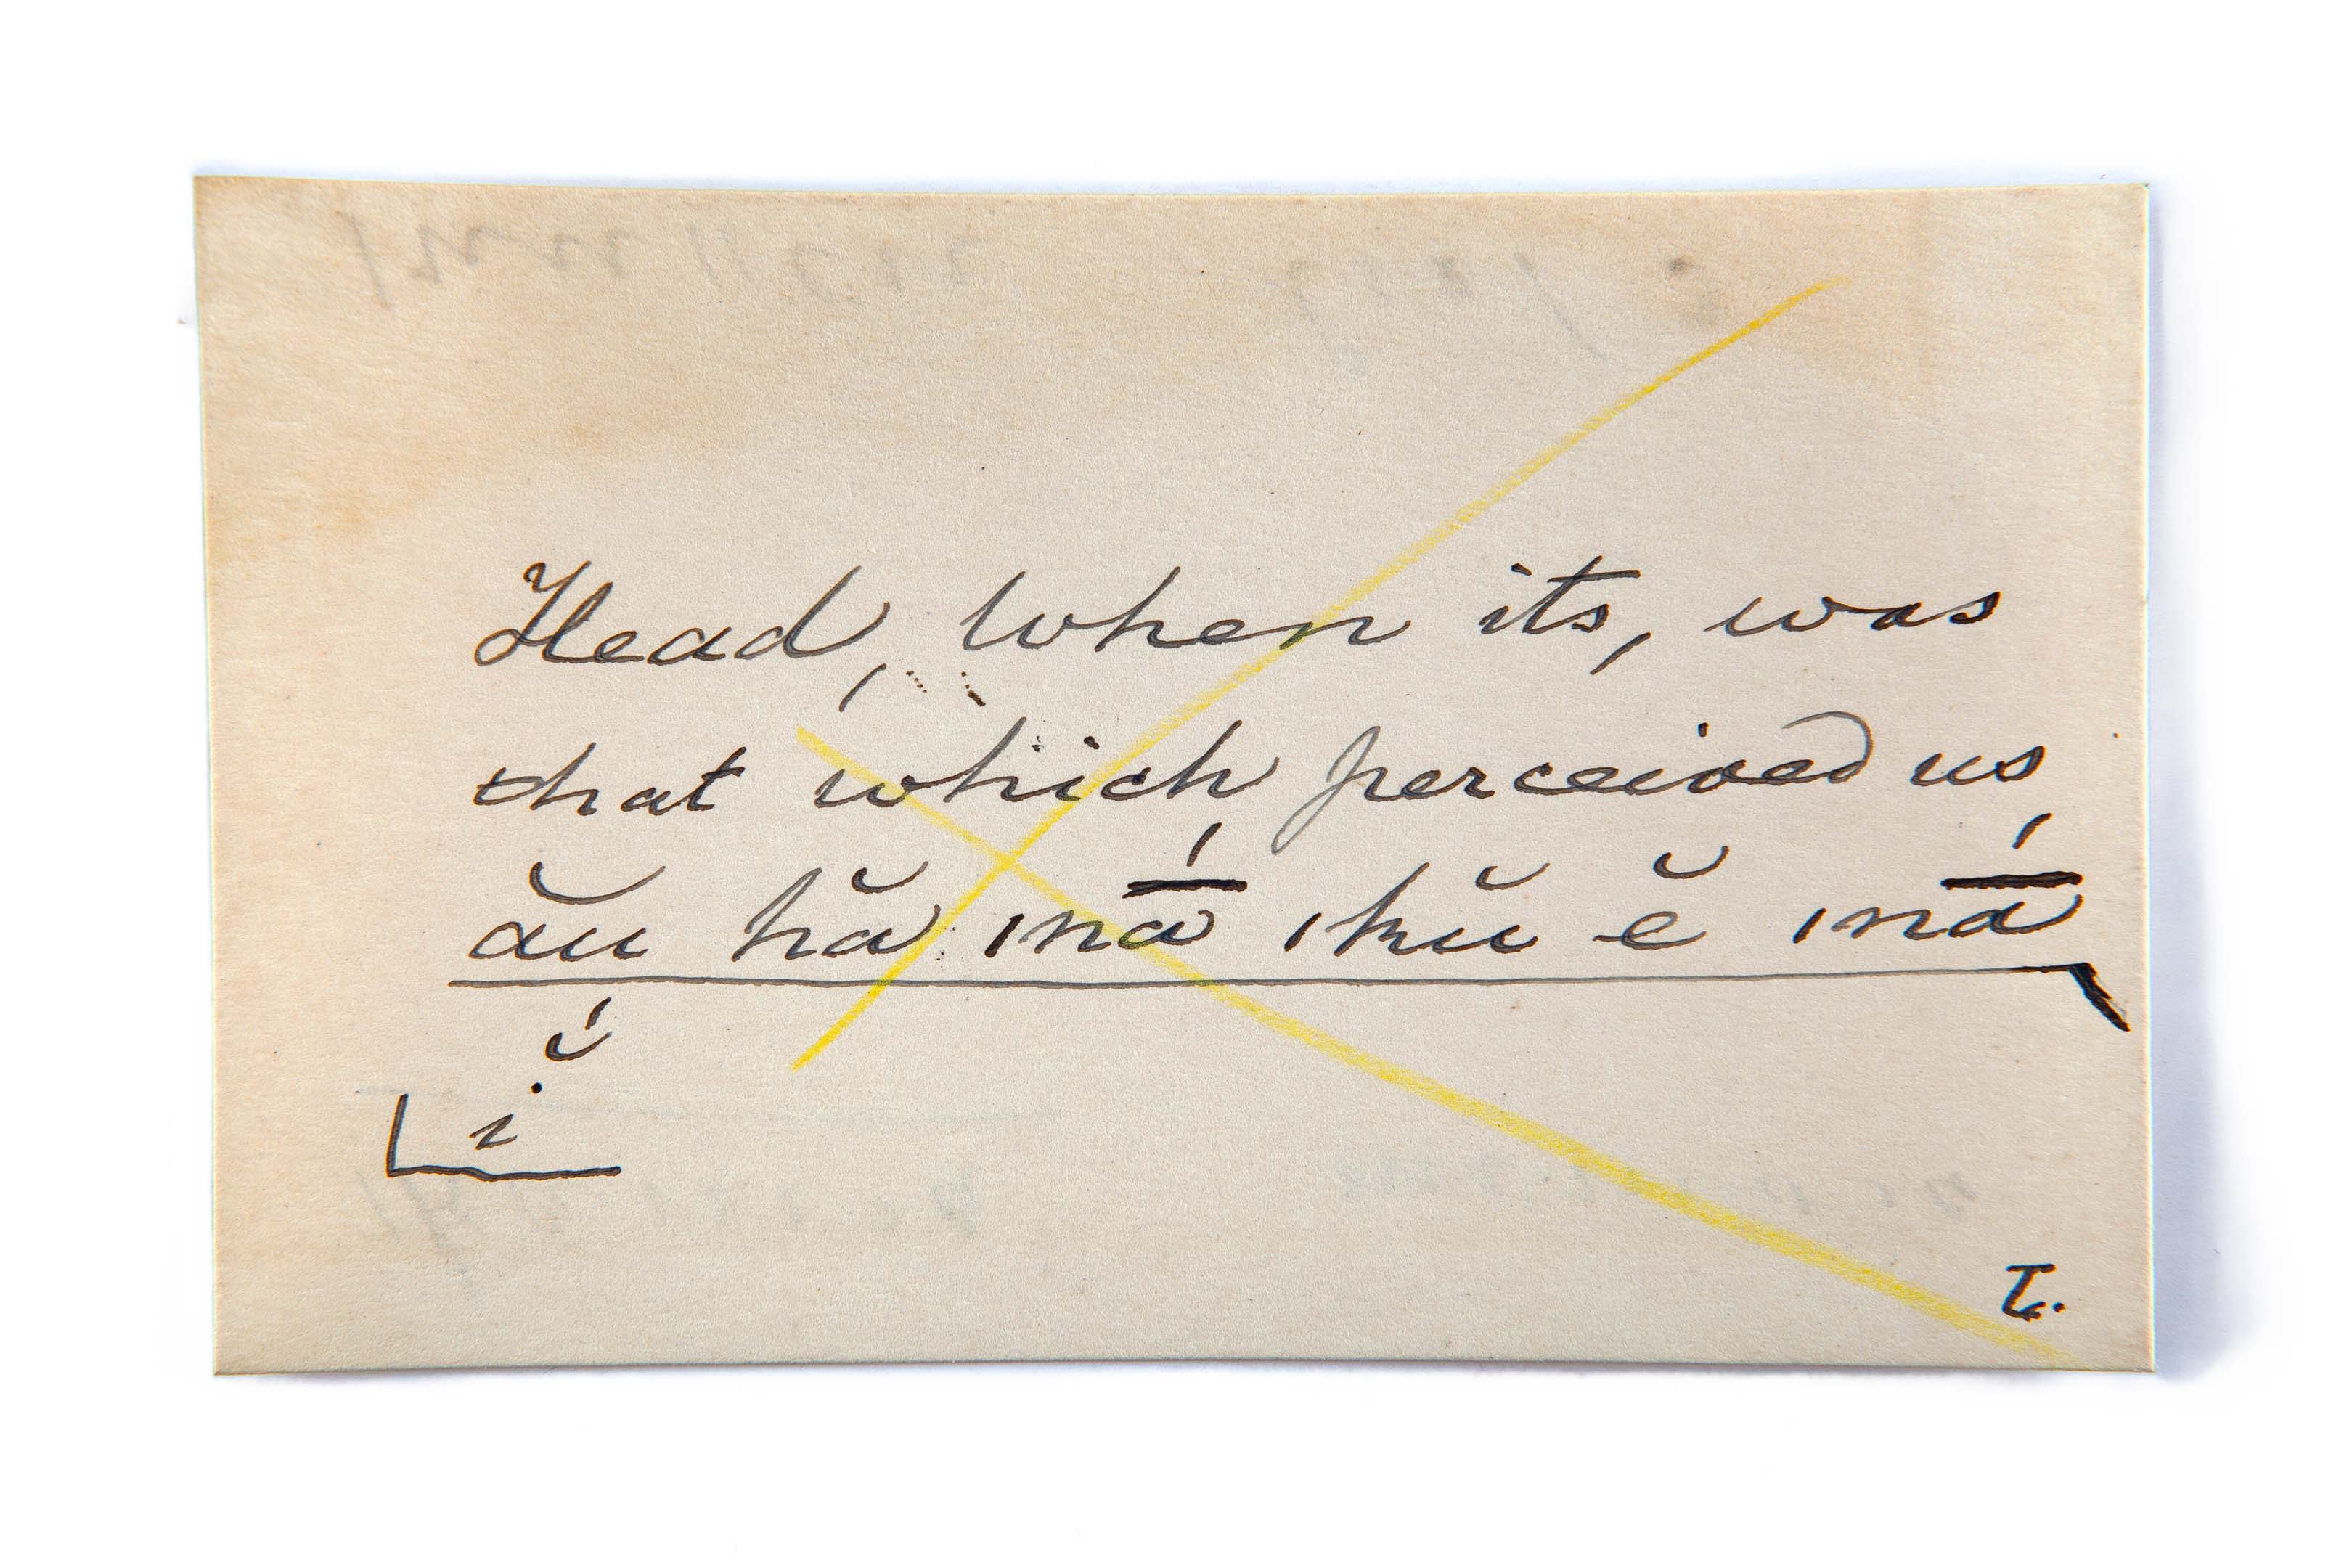 Head, When its, was
that which perceived us,
ău hă mā́ kŭ ĕ mā́
ĭ́
T.